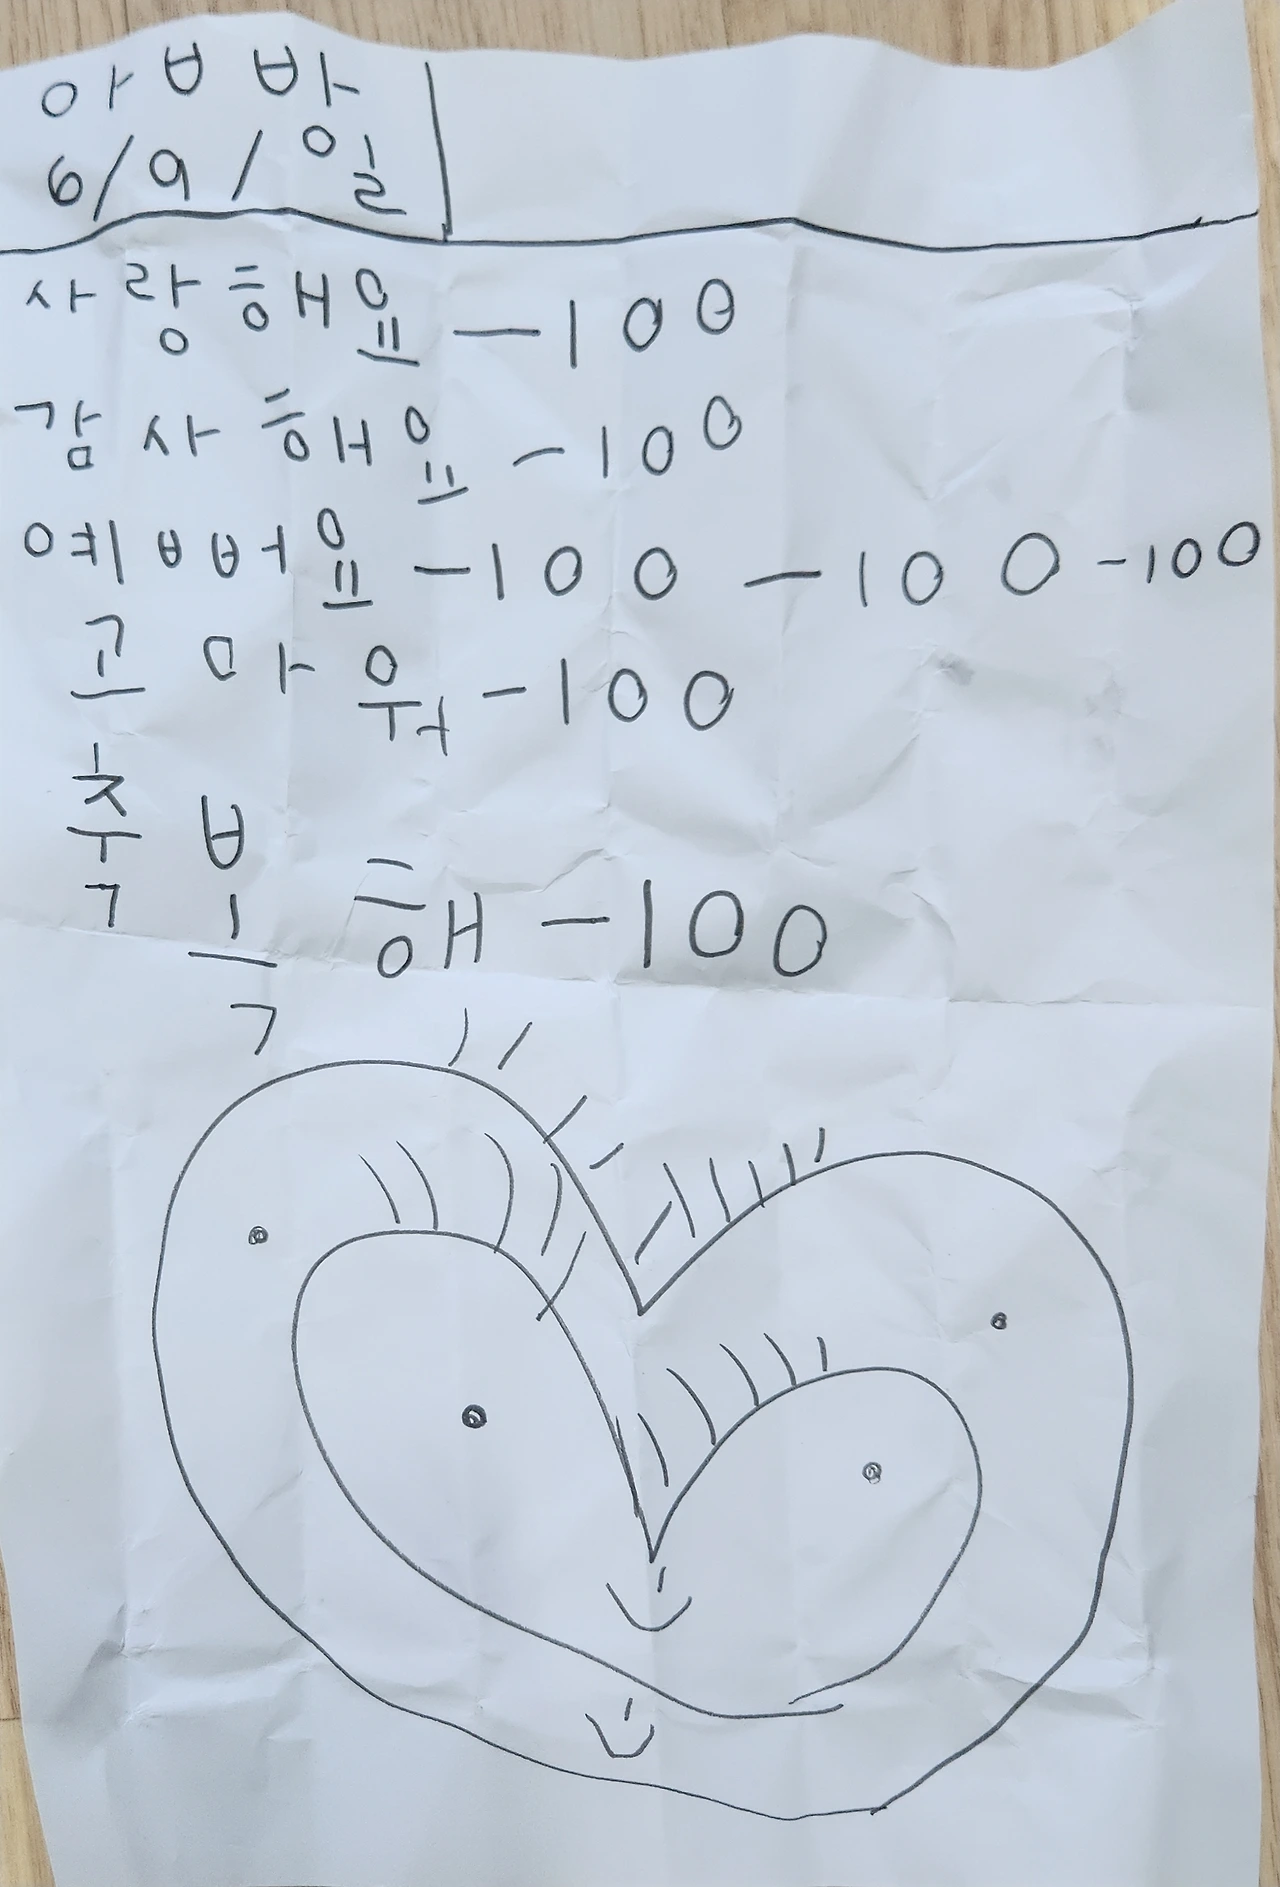 아빠
6/9/일
사랑해요-100
감사해요-100
예뻐요-100-100-100
고마워-100
축복해-100